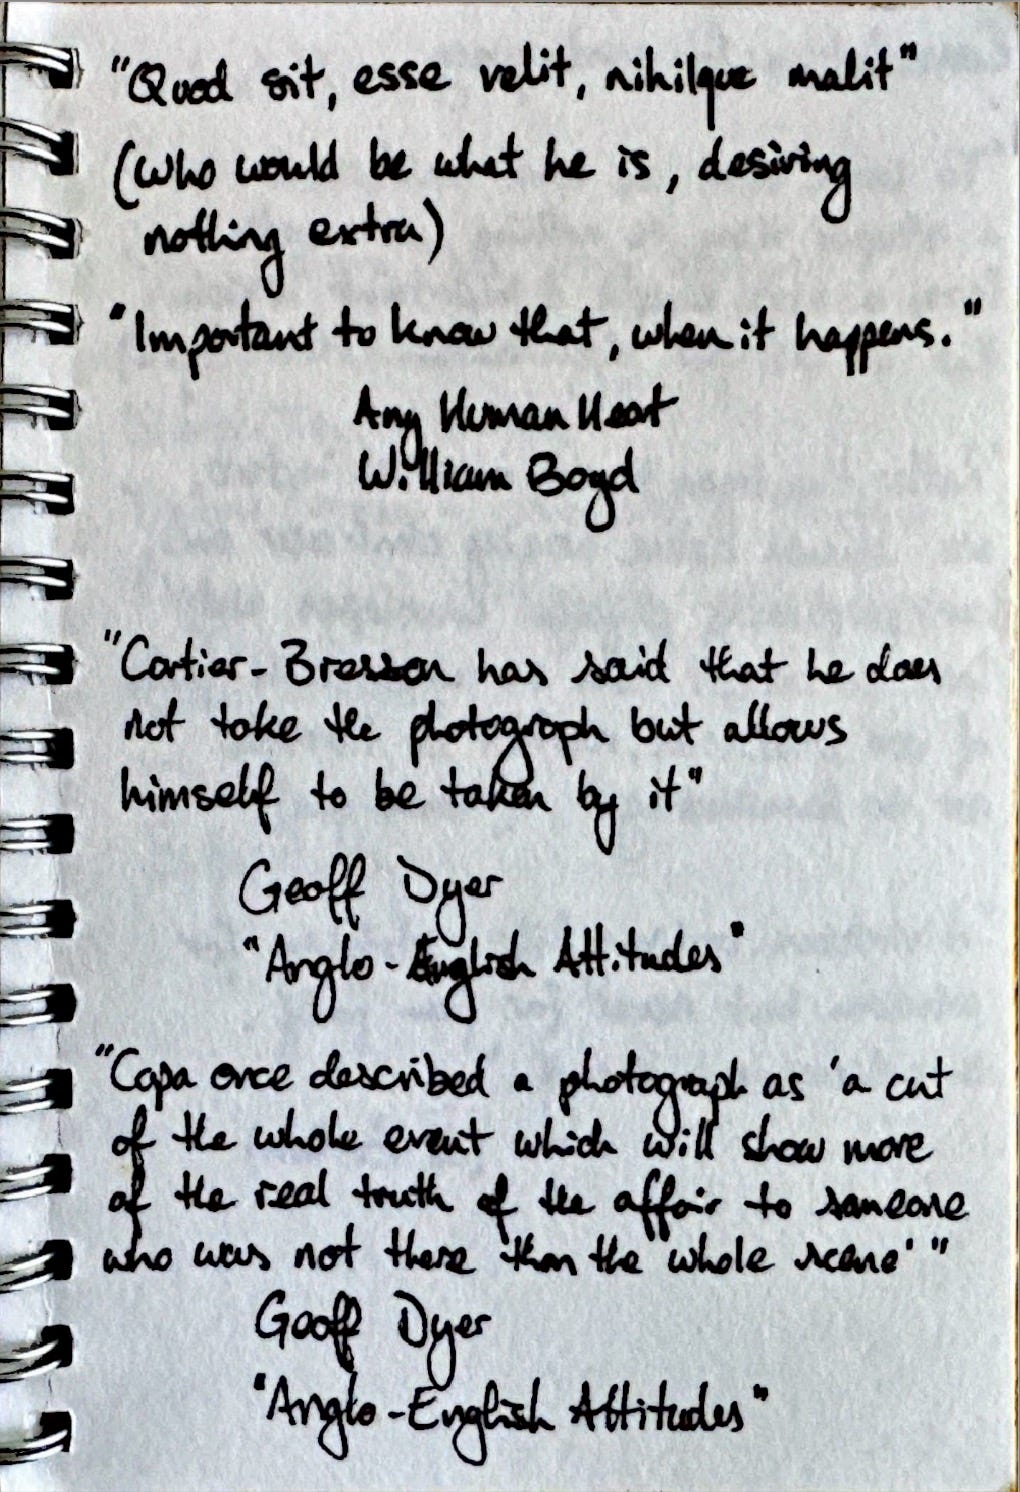 "Quod sit, esse velit, nihilque malit"
(Who would be what he is, desiring
nothing extra)
"Important to know that, when it happens."
Any Human Heart
William Boyd
"Cartier-Bresson has said that he does
not take the photograph but allows
himself to be taken by it"
Geoff Dyer
"Anglo-English Attitudes"
"Capa once described a photograph as 'a cut
of the whole event which will show more
of the real truth of the affair to someone
who was not there than the whole scene'"
Geoff Dyer
"Anglo-English Attitudes"